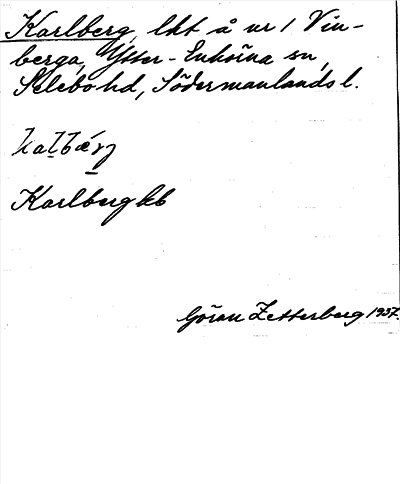 Karlberg, lht å nr 1 Vin-
berga, Ytter-Enhörna sn,
Selebo hd, Södermanlands l.
Karlberg kb
Göran Zetterberg 1937.